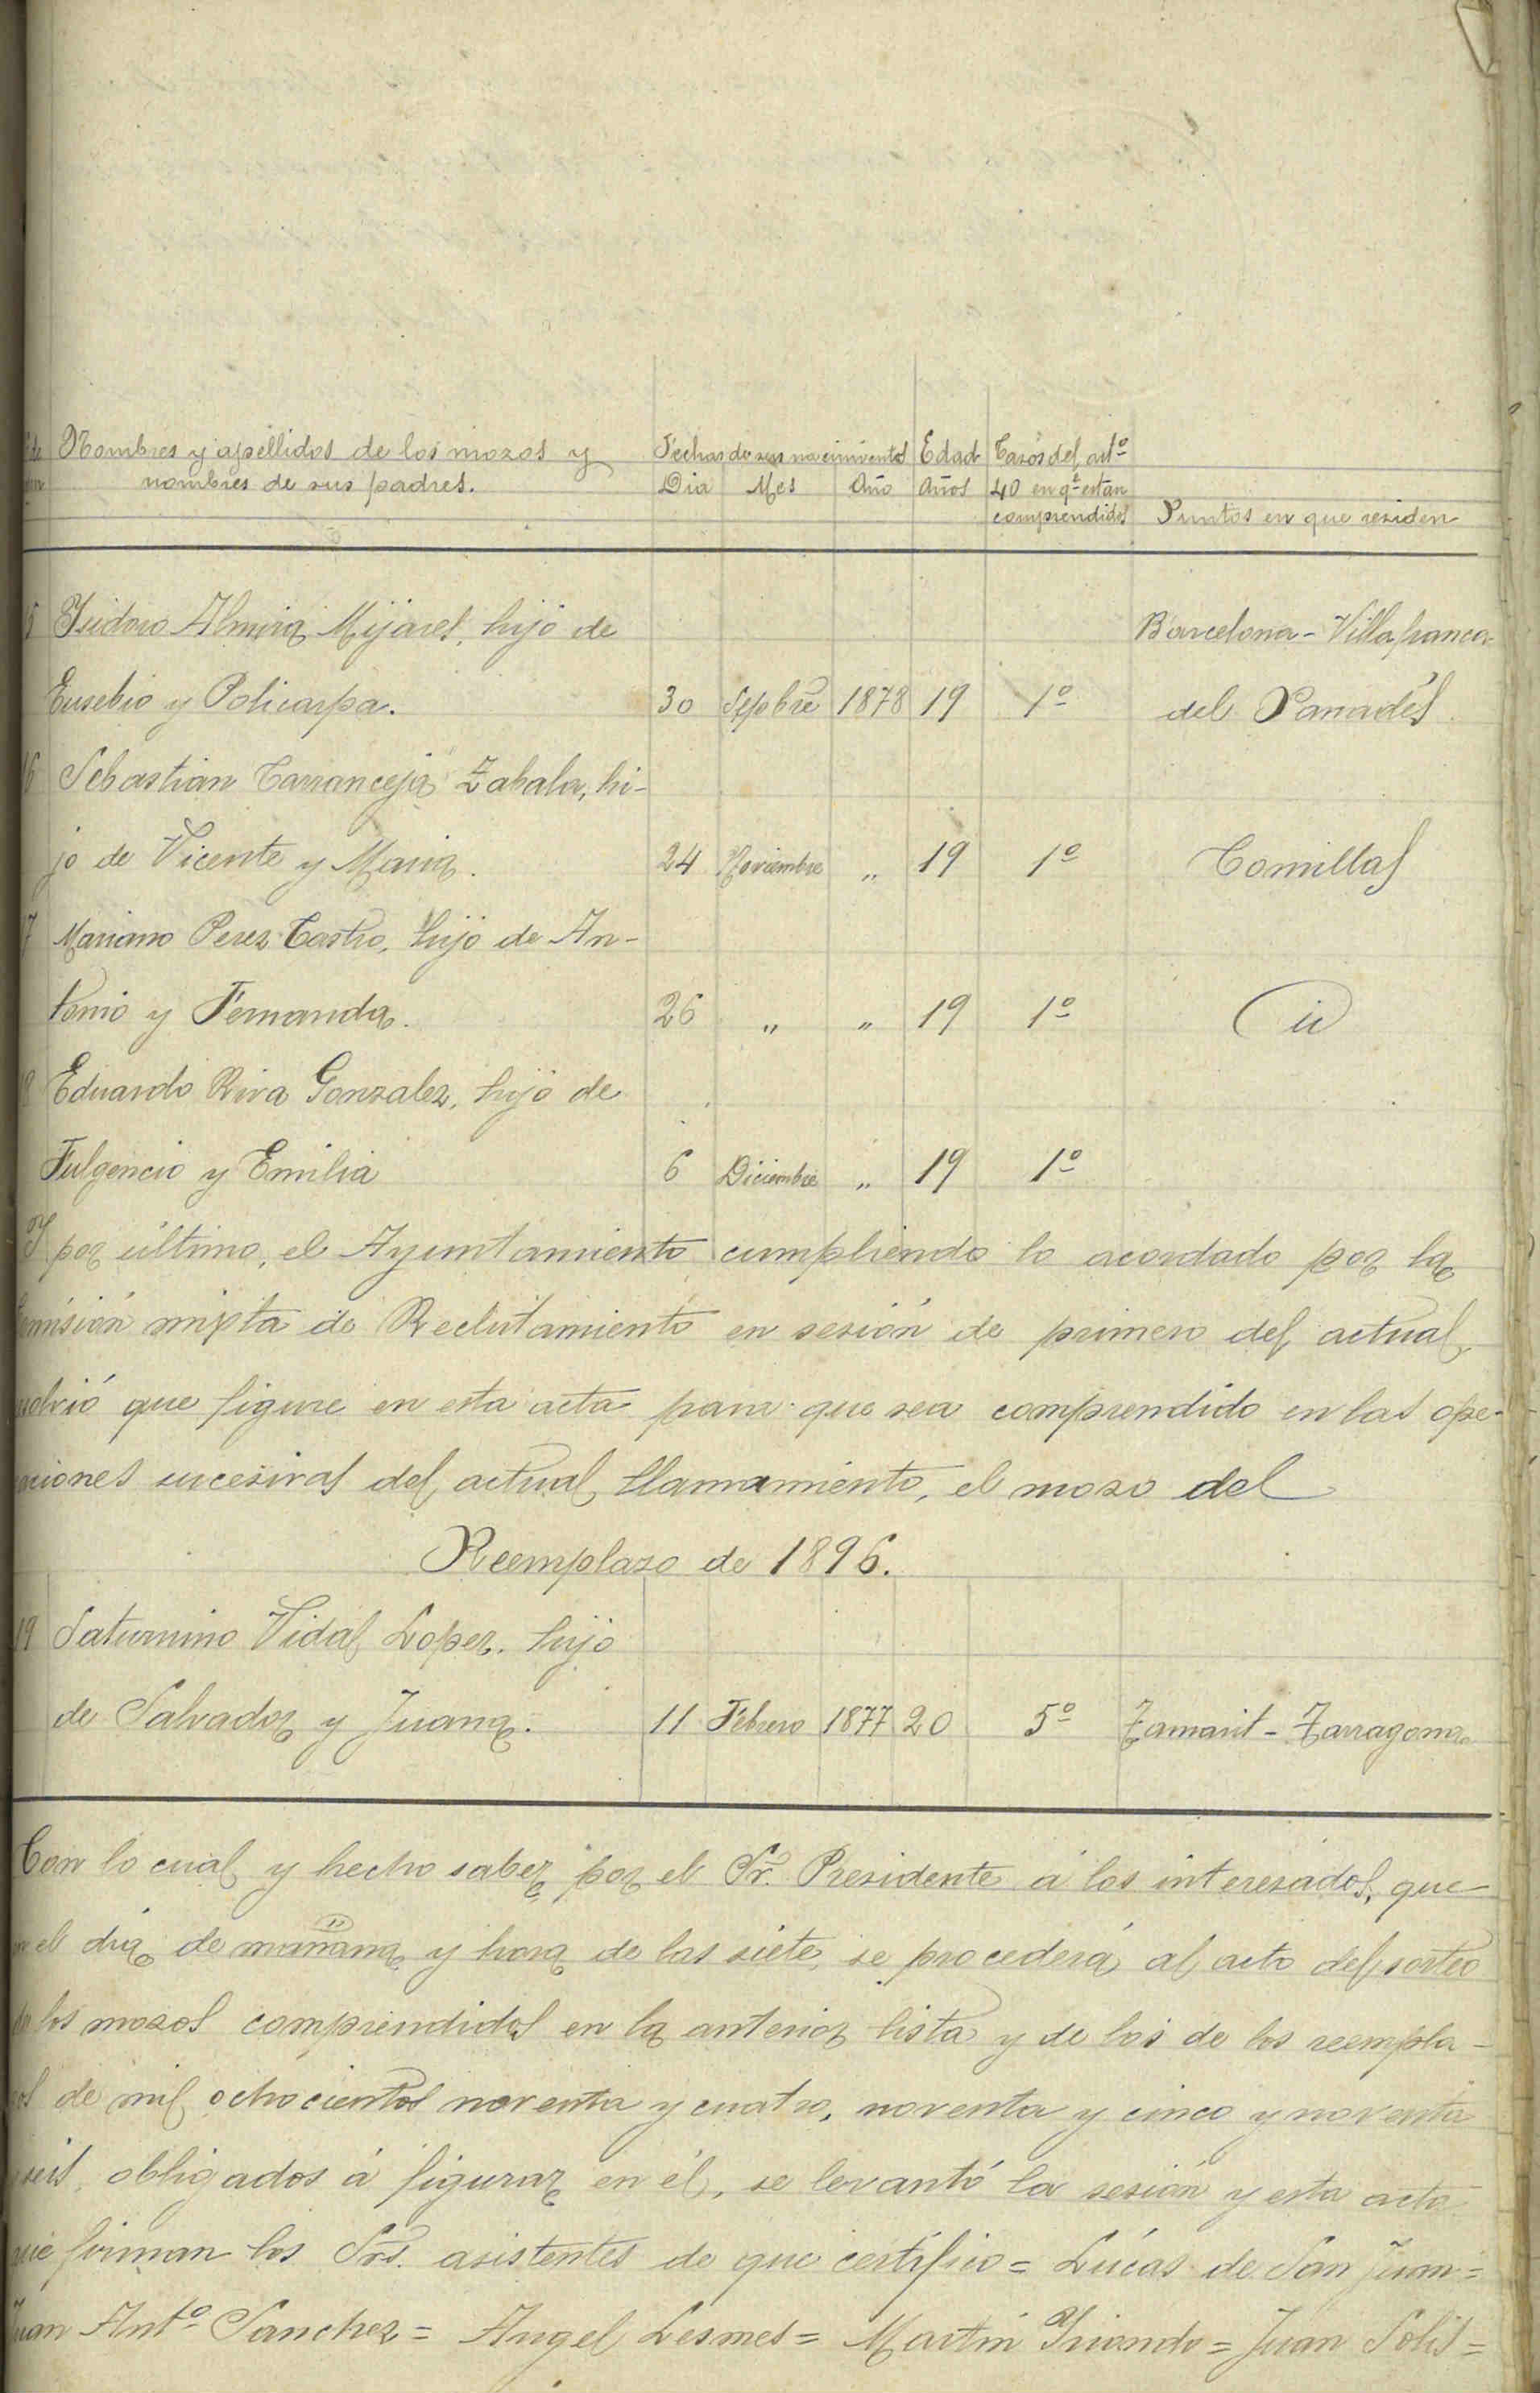 Nombres y apellidos de los mozos y Fechas de sus nacimientos Edad Casos del artº
nombres de sus padres. Dia Mes Año Años 40 en qe estan
comprendidos Puntos en que residen
5 Isidoro Almira Mijares, hijo de Barcelona - Villafranca
Eusebio y Policarpa. 30 Sepbre 1878 19 1º del Panadés
16 Sebastian Carranceja Zabala, hi-
jo de Vicente y Maria. 24 Noviembre " 19 1º Comillas
7 Mariano Perez Castro, hijo de An-
tonio y Fernanda. 26 " " 19 1º id
8 Eduardo Riva Gonzalez, hijo de
Fulgencio y Emilia 6 Diciembre " 19 1º
Y por último, el Ayuntamiento cumpliendo lo acordado por la
omisión mixta de Reclutamiento en sesión de primero del actual,
solvió que figure en esta acta para que sea comprendido en las ope-
aciones sucesivas del actual llamamiento, el mozo del
Reemplazo de 1896.
19 Saturnino Vidal Lopez, hijo
de Salvador y Juana. 11 Febrero 1877 20 5º Tamarit - Tarragona
Con lo cual y hecho saber por el Sr. Presidente á los interesados, que
en el dia de mañana y hora de las siete, se procederá al acto del sorteo
de los mozos comprendidos en la anterior lista y de los de los reempla-
zos de mil ochocientos noventa y cuatro, noventa y cinco y noventa
y seis, obligados á figurar en él, se levantó la sesión y esta acta
que firman los Srs. asistentes de que certifico = Lúcas de San Juan =
Juan Antº Sanchez = Angel Lesmes = Martin Iriondo = Juan Solis =